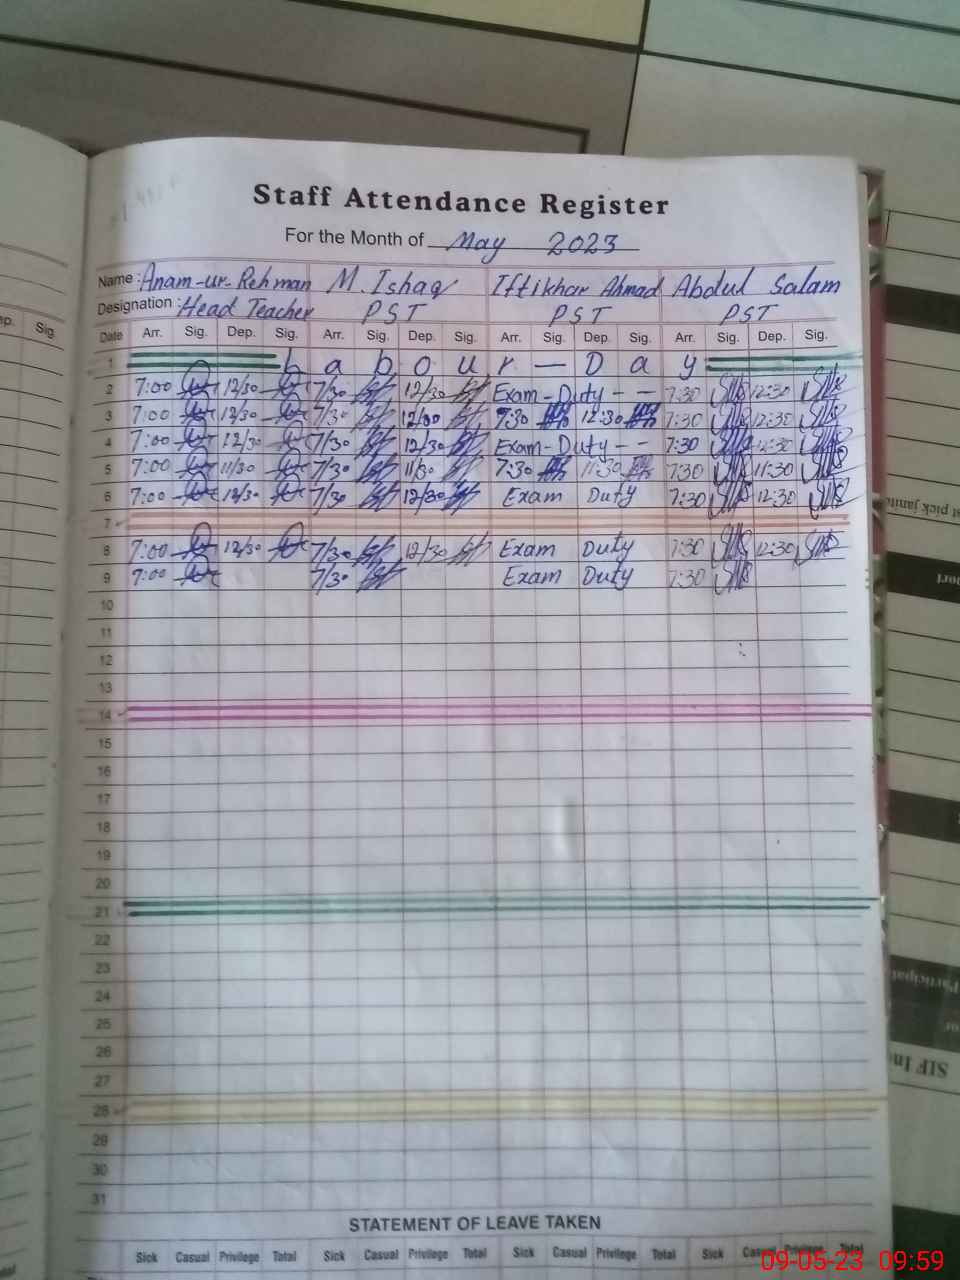 Staff Attendance Register
For the Month of May 2023
Name : Anam-ur-Rehman M. Ishaq Iftikhar Ahmad Abdul Salam
Designation : Head Teacher PST PST PST
Date Arr. Sig. Dep. Sig. Arr. Sig. Dep. Sig. Arr. Sig. Dep. Sig. Arr. Sig. Dep. Sig.
1 L a b o u r — D a y
2 7:00 12/30 7/30 12/30 Exam-Duty - - 7:30 12:30
3 7:00 12/30 7/30 12/00 7:30 12:30 7:30 12:30
4 7:00 12/30 7/30 12/30 Exam-Duty - - 7:30 12:30
5 7:00 11/30 7/30 11/30 7:30 11:30 7:30 11:30
6 7:00 12/30 7/30 12/30 Exam Duty 7:30 12:30
7
8 7:00 12/30 7/30 12/30 Exam Duty 7:30 12:30
9 7:00 7/30 Exam Duty 7:30
10
11
12
13
14
15
16
17
18
19
20
21
22
23
24
25
26
27
28
29
30
31
STATEMENT OF LEAVE TAKEN
Sick Casual Privilege Total Sick Casual Privilege Total Sick Casual Privilege Total Sick Casual Privilege Total
09-05-23 09:59
Sig.
SIF